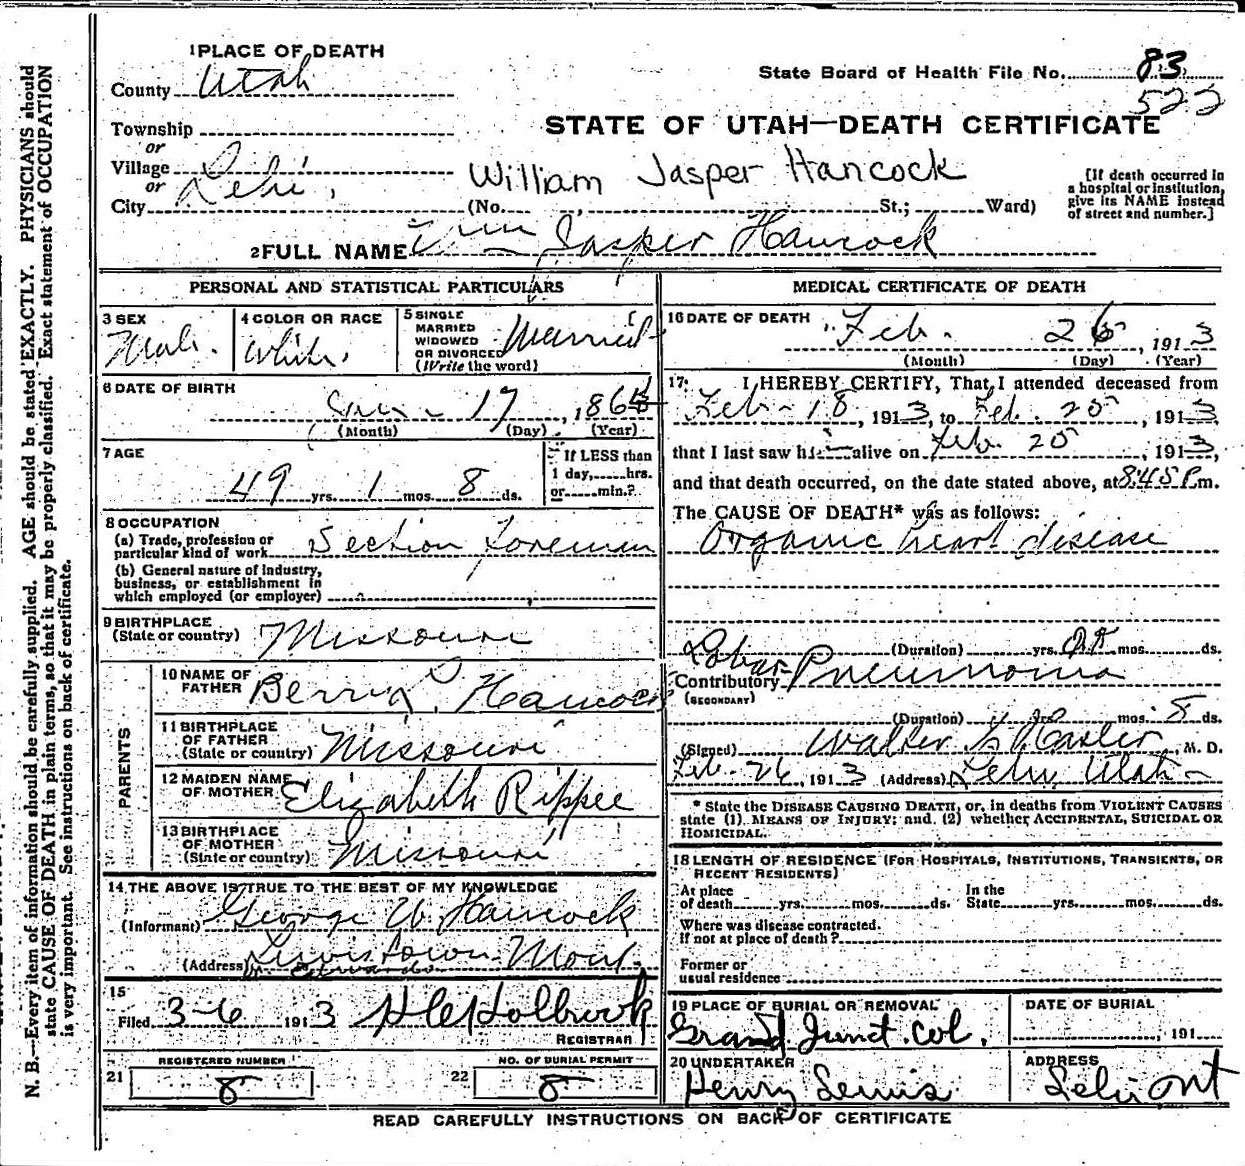 1 PLACE OF DEATH
County Utah
State Board of Health File No. 83
522
Township
or
Village
or
City Lehi,
STATE OF UTAH—DEATH CERTIFICATE
William Jasper Hancock
(No. , St.; Ward)
[If death occurred in
a hospital or institution,
give its NAME instead
of street and number.]
2 FULL NAME Wm Jasper Hancock
PERSONAL AND STATISTICAL PARTICULARS
3 SEX
Male.
4 COLOR OR RACE
White.
5 SINGLE
MARRIED
WIDOWED
OR DIVORCED
(Write the word)
Married
6 DATE OF BIRTH
Jan - 17, 1864
(Month) (Day) (Year)
7 AGE
49 yrs. 1 mos. 8 ds.
If LESS than
1 day, hrs.
or min.?
8 OCCUPATION
(a) Trade, profession or
particular kind of work Section foreman
(b) General nature of industry,
business, or establishment in
which employed (or employer)
9 BIRTHPLACE
(State or country) Missouri
PARENTS
10 NAME OF
FATHER Berri L. Hancock
11 BIRTHPLACE
OF FATHER
(State or country) Missouri
12 MAIDEN NAME
OF MOTHER Elizabeth Rippee
13 BIRTHPLACE
OF MOTHER
(State or country) Missouri
14 THE ABOVE IS TRUE TO THE BEST OF MY KNOWLEDGE
(Informant) George W. Hancock
(Address) Lewistown Mont.
15
Filed 3-6 1913 H C Holbrook
REGISTRAR
REGISTERED NUMBER
21 8
NO. OF BURIAL PERMIT
22 8
MEDICAL CERTIFICATE OF DEATH
16 DATE OF DEATH
Feb. 25, 1913
(Month) (Day) (Year)
17: I HEREBY CERTIFY, That I attended deceased from
Feb - 18, 1913, to Feb. 25, 1913,
that I last saw him alive on Feb. 25, 1913,
and that death occurred, on the date stated above, at 8:45 P.m.
The CAUSE OF DEATH* was as follows:
Organic heart disease
(Duration) yrs. mos. ds.
Lobar
Contributory Pneumonia
(SECONDARY)
(Duration) mos. 8 ds.
(Signed) Walter, M. D.
Feb - 26, 1913 (Address) Lehi, Utah
* State the DISEASE CAUSING DEATH, or, in deaths from VIOLENT CAUSES
state (1) MEANS OF INJURY; and (2) whether ACCIDENTAL, SUICIDAL OR
HOMICIDAL.
18 LENGTH OF RESIDENCE (FOR HOSPITALS, INSTITUTIONS, TRANSIENTS, OR
RECENT RESIDENTS)
At place
of death yrs. mos. ds.
In the
State yrs. mos. ds.
Where was disease contracted.
if not at place of death?
Former or
usual residence
19 PLACE OF BURIAL OR REMOVAL
Grand Junct. Col.
DATE OF BURIAL
, 191
20 UNDERTAKER
Henry Lewis
ADDRESS
Lehi
READ CAREFULLY INSTRUCTIONS ON BACK OF CERTIFICATE
N. B.—Every item of information should be carefully supplied. AGE should be stated EXACTLY. PHYSICIANS should
state CAUSE OF DEATH in plain terms, so that it may be properly classified. Exact statement of OCCUPATION
is very important. See instructions on back of certificate.